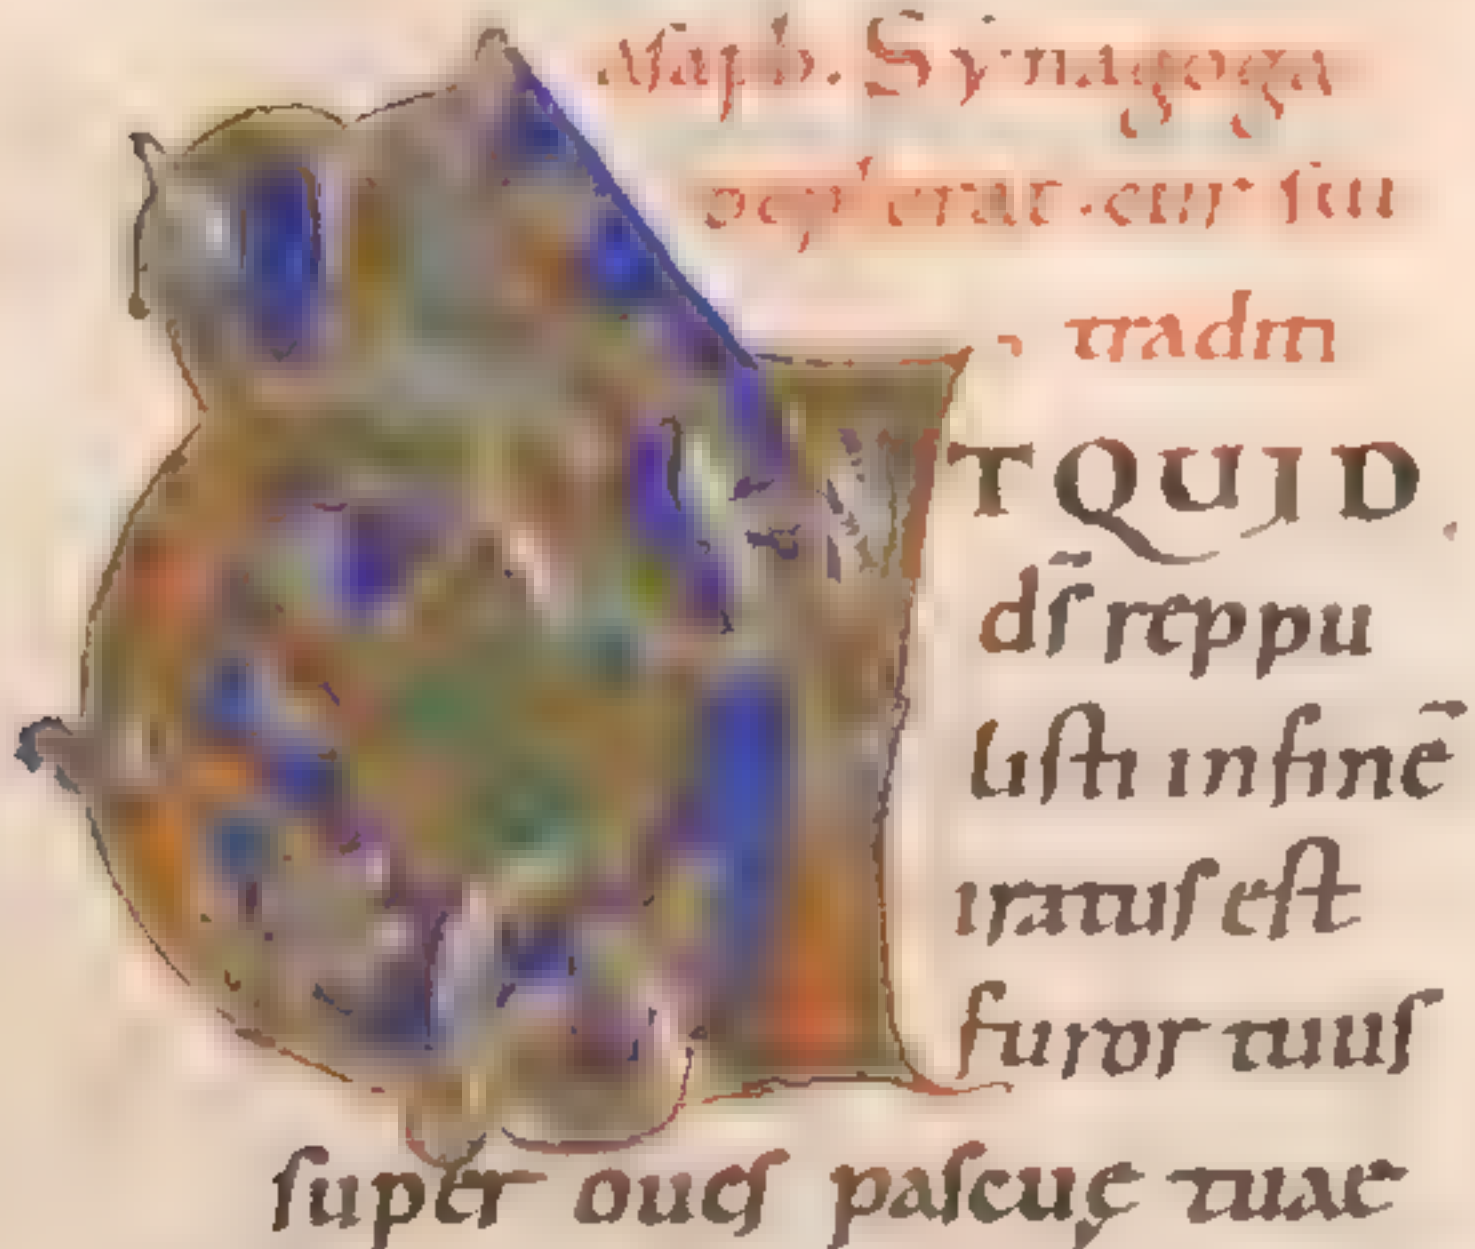 Asaph. Synagoga
tradm
TQUID
ds̄ reppu
listi in finē
iratus est
furor tuus
super oues pascuę tuae